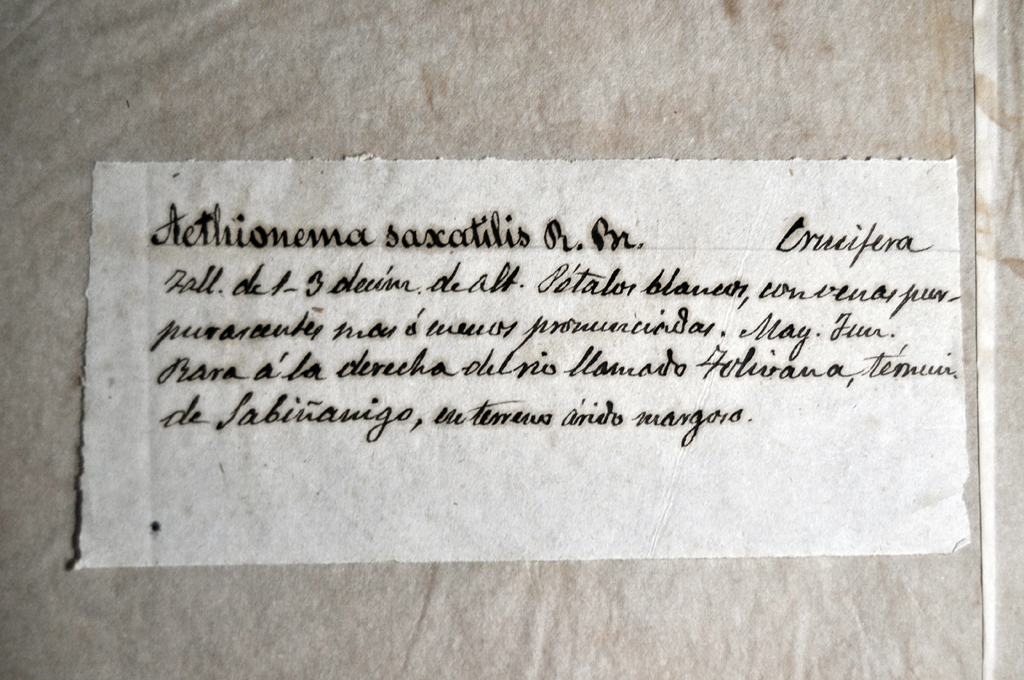 Aethionema saxatilis R. Br. Crucifera
Tall. de 1-3 decím. de alt. Pétalos blancos, con venas pur-
purascentes mas ó menos pronunciadas. May. Jun.
Rara á la derecha del rio llamado Tolivana, términ.
de Sabiñanigo, en terreno árido margoso.